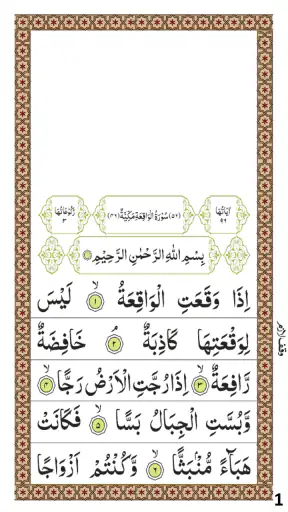 اٰیَاتُهَا ٩٦ (٥٦) سُوْرَةُ الْوَاقِعَةِ مَكِّيَّةٌ (٤٦) رُكُوْعَاتُهَا ٣
بِسْمِ اللّٰهِ الرَّحْمٰنِ الرَّحِیْمِ
اِذَا وَقَعَتِ الْوَاقِعَةُ ۙ١ لَیْسَ
لِوَقْعَتِهَا كَاذِبَةٌ ۘ٢ خَافِضَةٌ
رَّافِعَةٌ ۙ٣ اِذَا رُجَّتِ الْاَرْضُ رَجًّا ۙ٤
وَّبُسَّتِ الْجِبَالُ بَسًّا ۙ٥ فَكَانَتْ
هَبَآءً مُّنْۢبَثًّا ۙ٦ وَّكُنْتُمْ اَزْوَاجًا
1